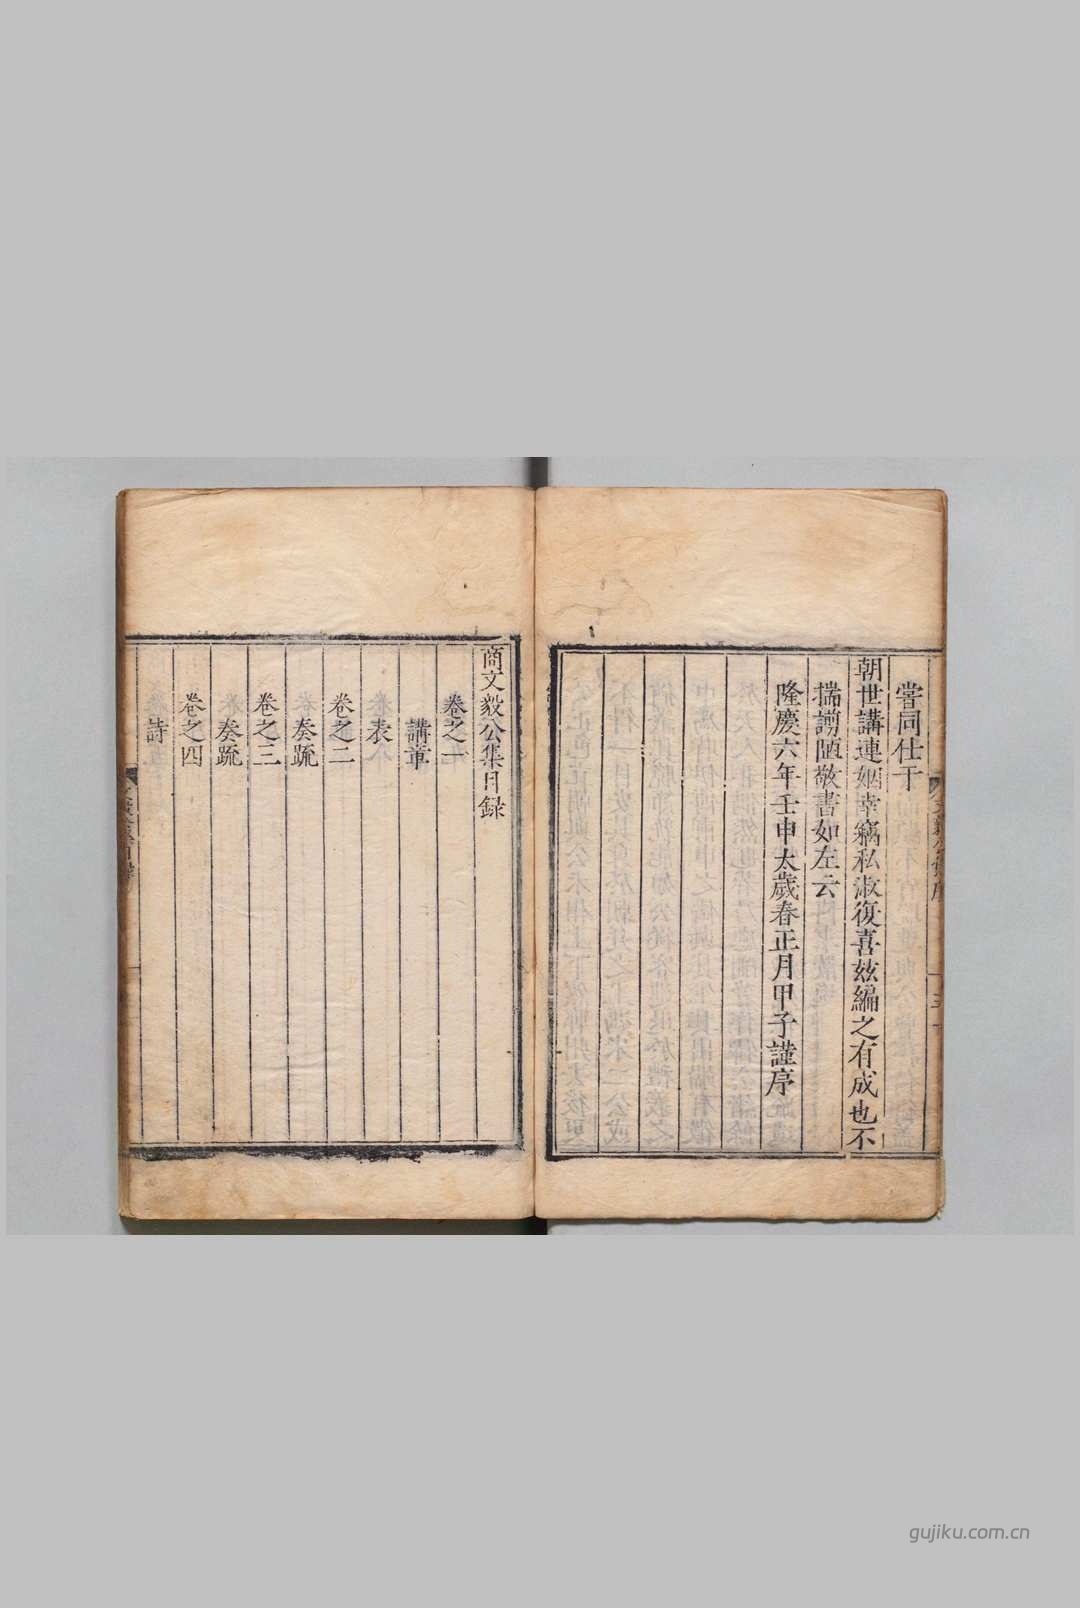 嘗同仕于
朝世講連姻幸竊私淑復喜茲編之有成也不
揣謭陋敬書如左云
隆慶六年壬申太歲春正月甲子謹序
商文毅公集目録
卷之一
講章
表
卷之二
奏疏
卷之三
奏疏
卷之四
詩
gujiku.com.cn